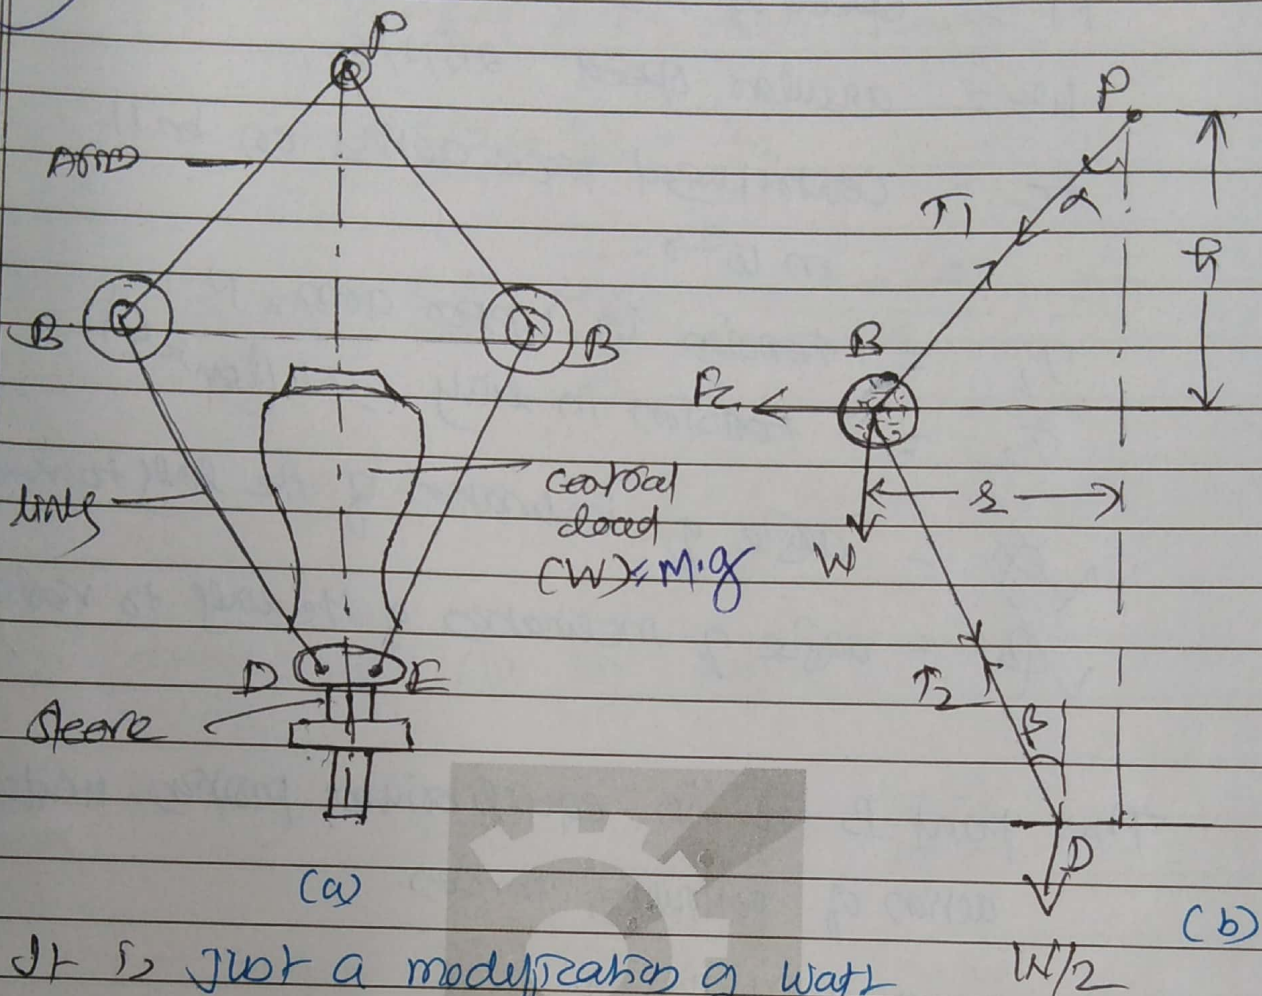 P
Arm
B
B
links
central
load
(W) = M.g
D
E
Sleeve
(a)
P
α
T1
h
B
Fc
r
W
T2
β
D
W/2
(b)
It is just a modification of watt